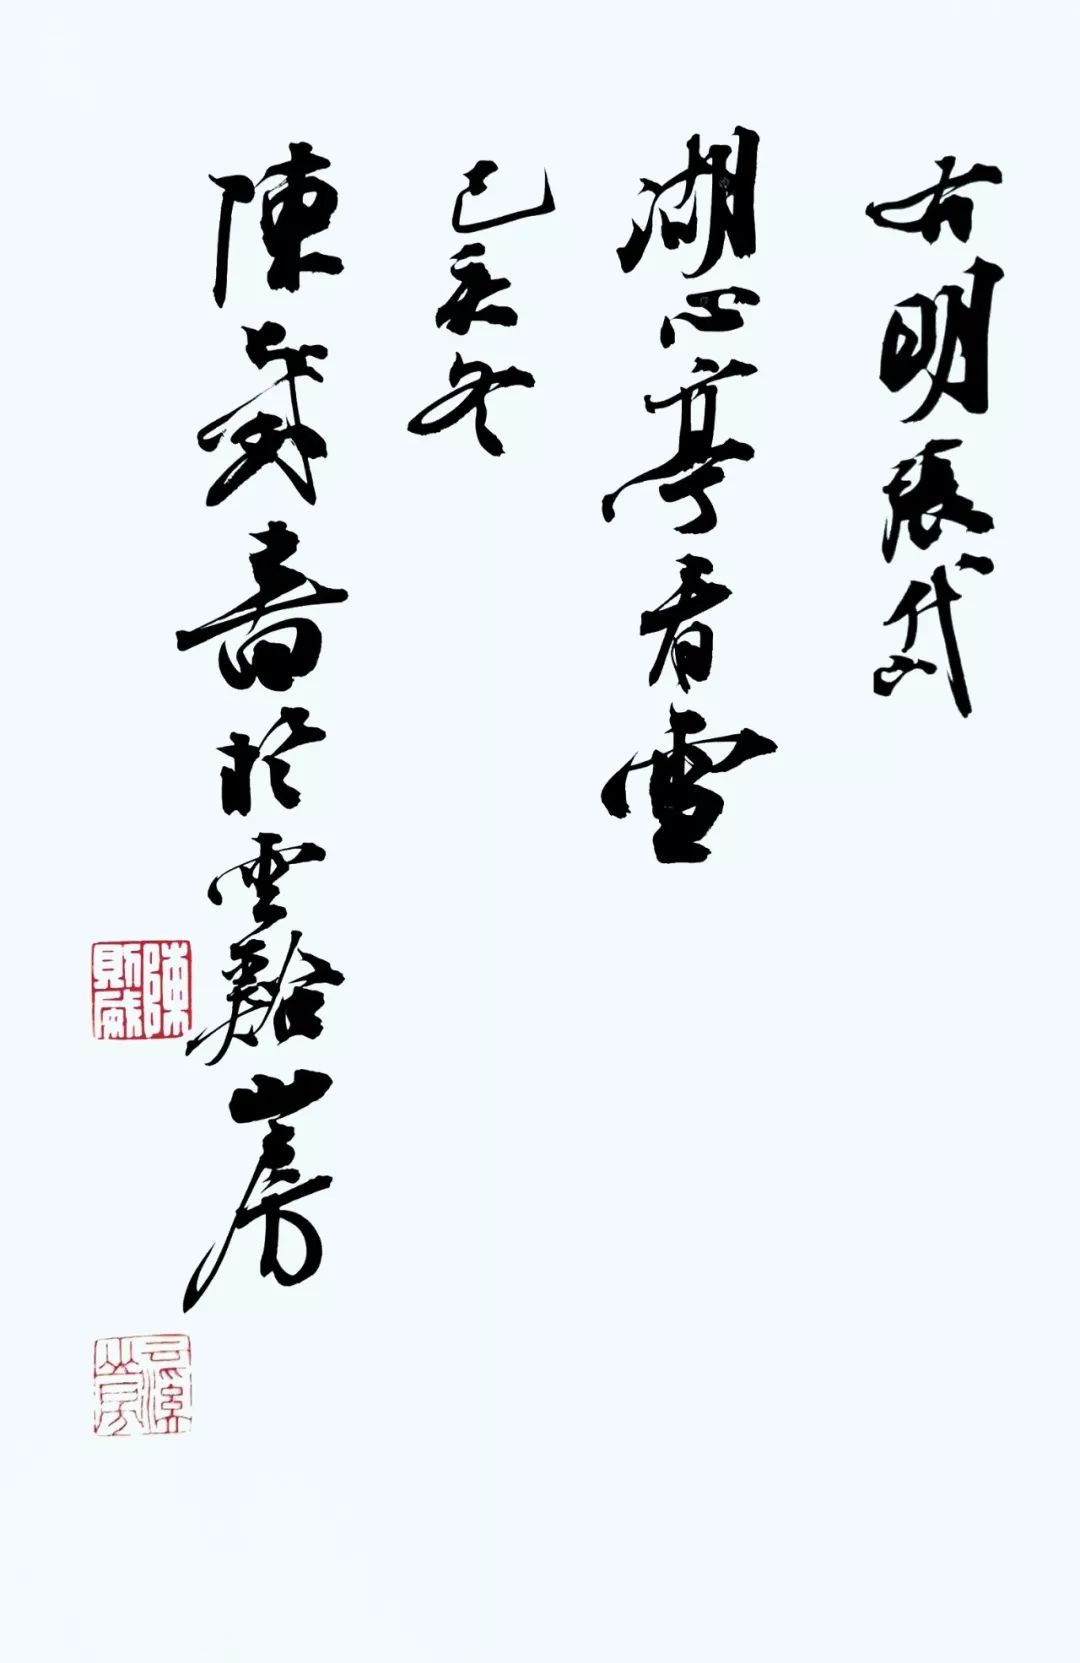 右明張岱
湖心亭看雪
己亥冬
陳歲書於雲谿山房
云溪山房